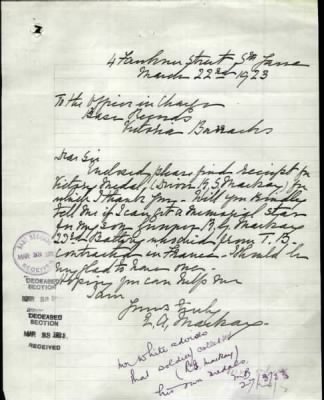 4 Faulkner Street, Sth Yarra
March 22nd 1923
To the Officer in Charge
Base Records
Victoria Barracks
Dear Sir
Enclosed please find receipt for
Victory Medal (Driver R.G. Mackay) for
which I thank you. Will you kindly
tell me if I can get a Memorial Star
for my son Gunner R.G. Mackay
23rd Battery who died from T.B.
contracted in France. Should be
very glad to have one.
Hoping you can help me
I am
Yours Truly
E.A. Mackay.
BASE RECORDS
MAR 1923
RECEIVED
DECEASED
SECTION
DECEASED
SECTION
MAR 1923
RECEIVED
Mr White advises
that soldier collected
(R.G. Mackay)
his own medals.
27/3/23